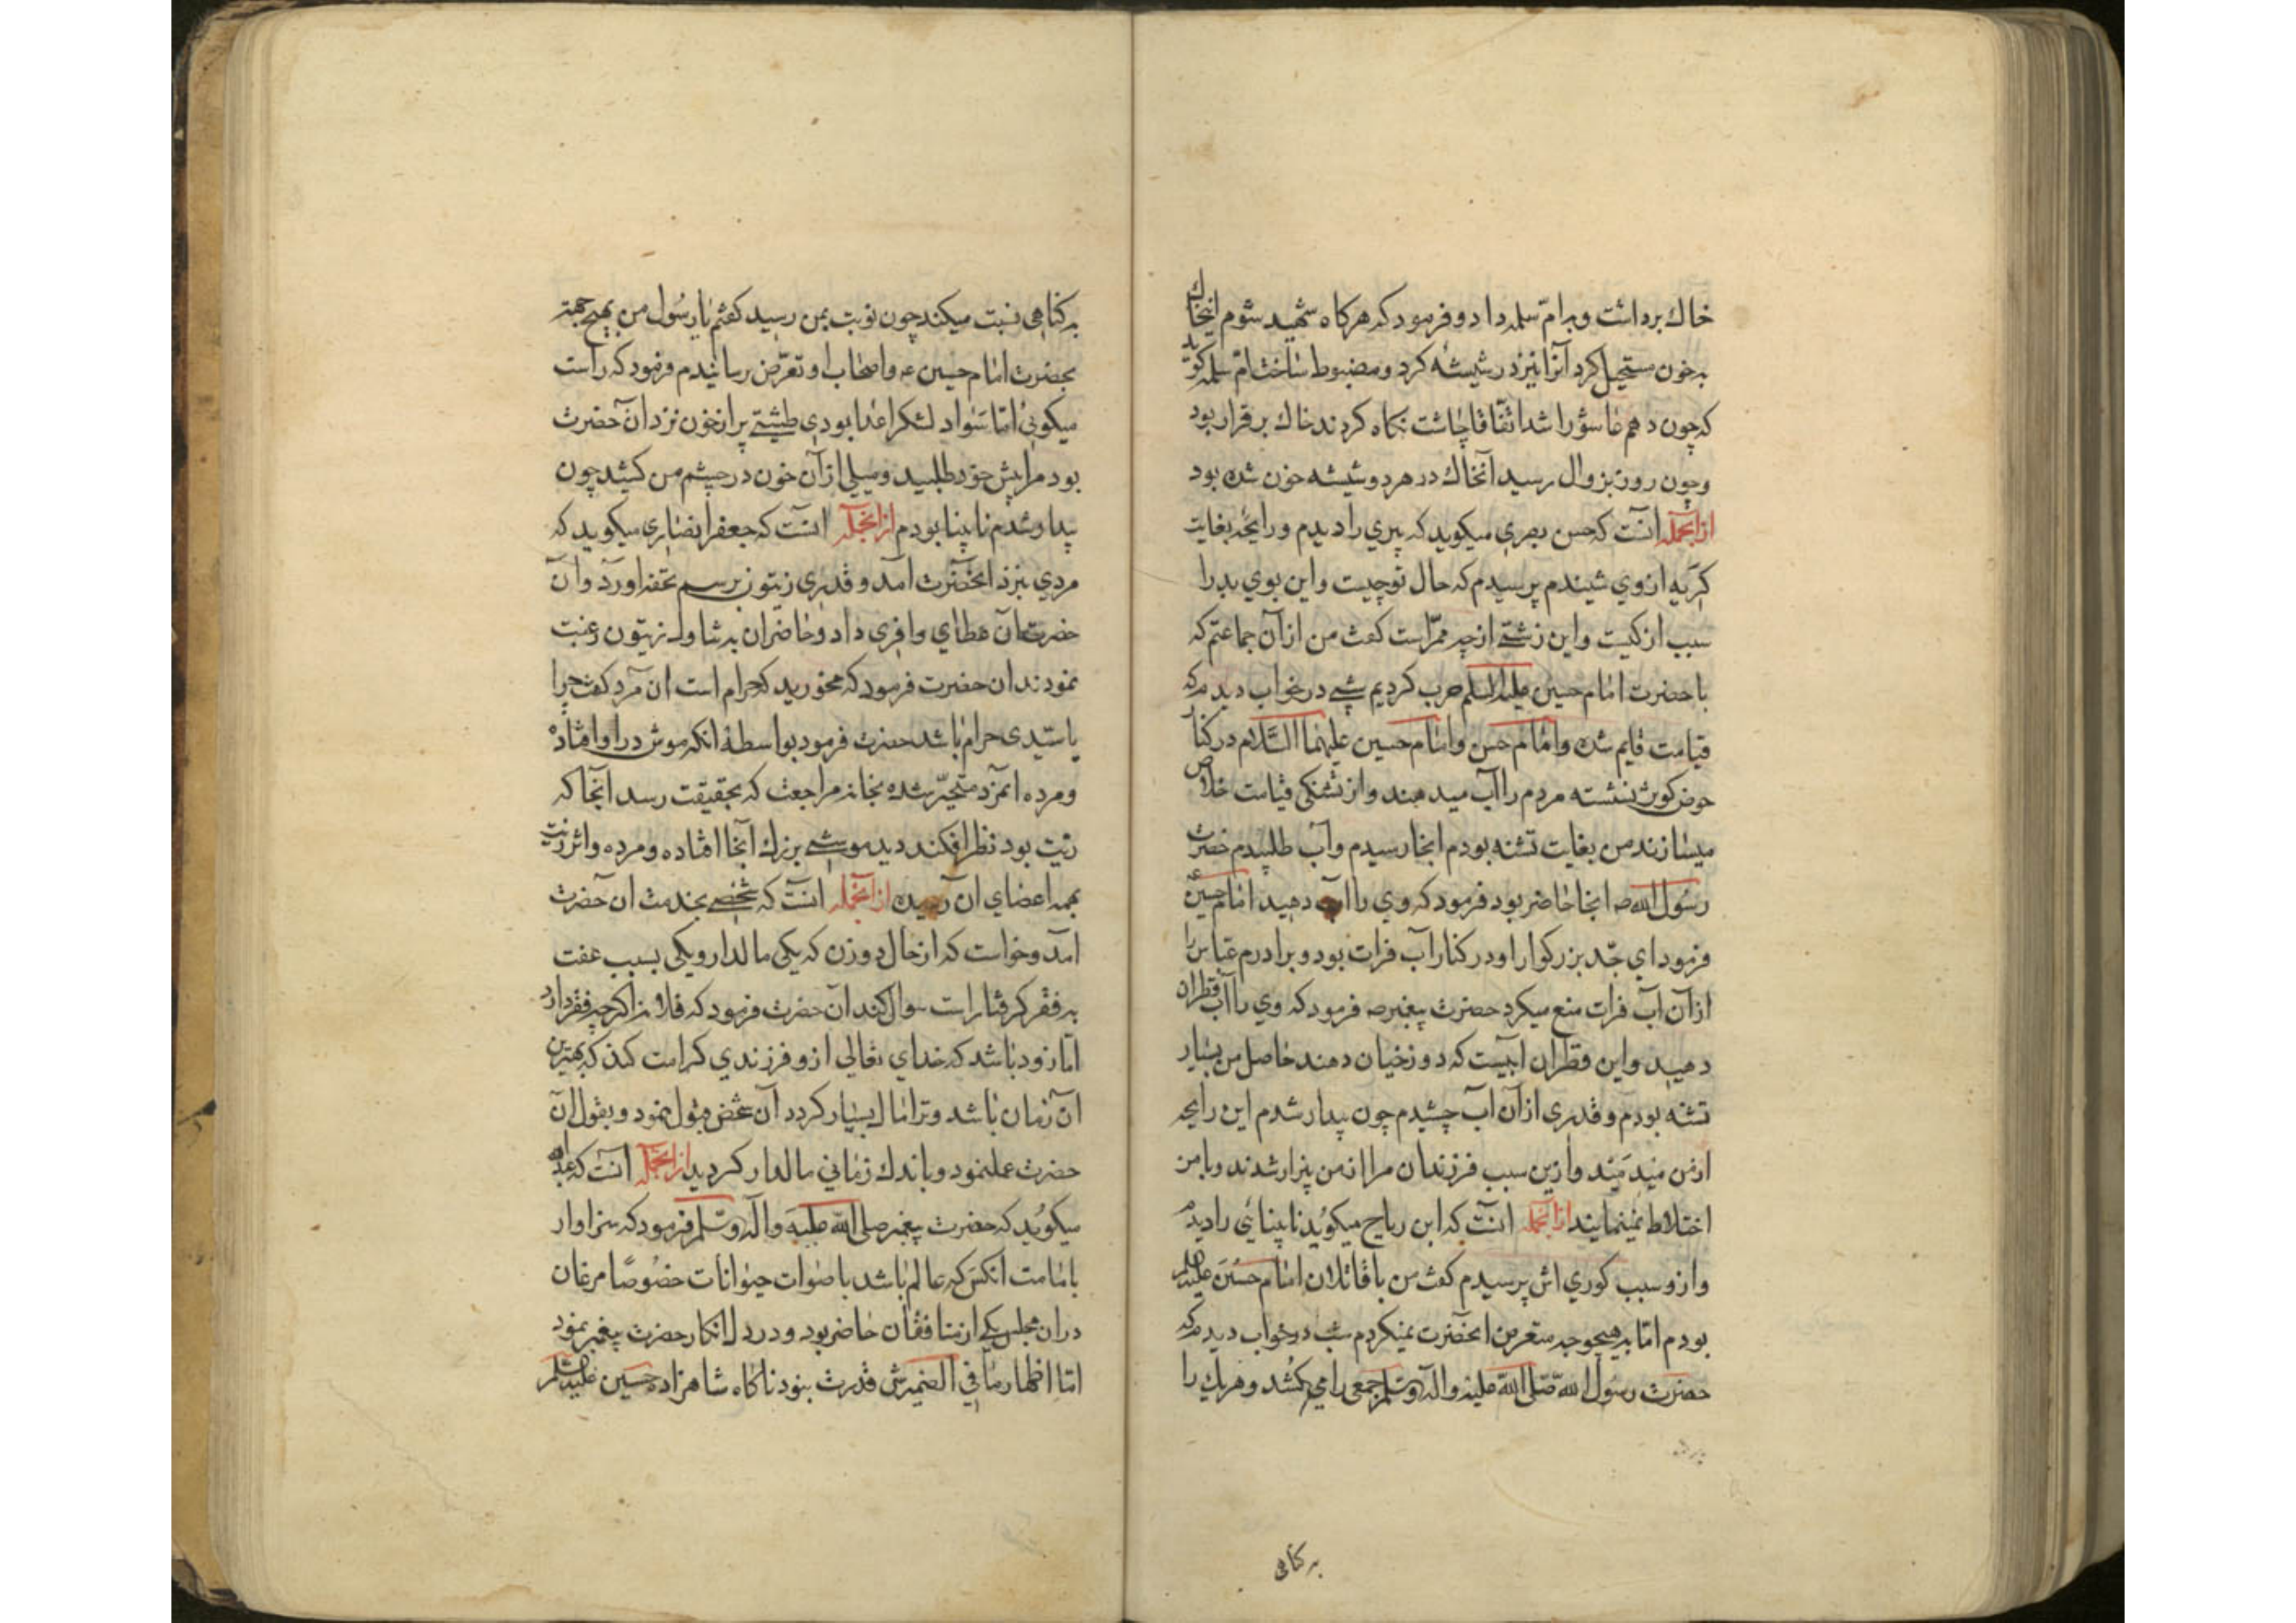 خاك برداشت و بام سلمه داد و فرمود كه هركاه شهید شوم اینخاك
به خون مستحیل كردد آنرا نیز در شیشه كرد و مضبوط ساخت ام سلمه كوید
كه چون دهم عاشورا شد اتفاقا چاشت نكاه كردند خاك برقرار بود
و چون روز بزوال رسید آنخاك در هر دو شیشه خون شده بود
از آنجمله آنست كه حسن بصری میكوید كه پیري را دیدم و رایحه بغایت
كریه از وي شنیدم پرسیدم كه حال تو چیست و این بوي بد را
سبب از كیست و این زشتی از چه ممر است كفت من از آن جماعتم كه
با حضرت امام حسین علیه السلم حرب كردیم شبی در خواب دیدم كه
قیامت قایم شده و امام حسن و امام حسین علیهما السلام در كنار
حوض كوثر نشسته مردم را آب میدهند و از تشنكی قیامت خلاص
میسازند من بغایت تشنه بودم آنجا رسیدم و آب طلبیدم حضرت
رسول الله صه آنجا حاضر بود فرمود كه وي را آب دهید امام حسین ع
فرمود اي جد بزركوار او در كنار آب فرات بود و برادرم عباس را
از آن آب فرات منع میكرد حضرت پیغمبر صه فرمود كه وي را آب قطران
دهید و این قطران آبیست كه دوزخیان دهند حاصل من بسیار
تشنه بودم و قدری از آن آب چشیدم چون بیدار شدم این رایحه
از من میدمید و ازین سبب فرزندان مرا از من بیزار شدند و با من
اختلاط نمینمایند از آنجمله آنست كه ابن ریاح میكوید نابینائي را دیدم
و از و سبب كوري اش پرسیدم كفت من با قاتلان امام حسین علیه السلم
بودم اما به هیچ وجه متعرض آنحضرت نمیكردم شب در خواب دیدم كه
حضرت رسول الله صلی الله علیه و آله و سلم جمعی را می كشد و هر یك را
به كناهی
به كناهی نسبت میكند چون نوبت بمن رسید كفتم یا رسول من بهیچ جهته
بحضرت امام حسین عه و اصحاب او تعرض رسانیدم فرمود كه راست
میكوئي اما سواد لشكر اعدا بودي طشتی پر از خون نزد آن حضرت
بود مرا پیش خود طلبید و میلی از آن خون در چشم من كشید چون
بیدار شدم نابینا بودم از آنجمله آنست كه جعفر انصاری میكوید كه
مردي بنزد آنحضرت آمد و قدری زیتون برسم تحفه آورد و آن
حضرت آن عطاي وافری داد و حاضران به تناول زیتون رغبت
نمودند آن حضرت فرمود كه مخورید كه حرام است آن مرد كفت چرا
یا سیدی حرام باشد حضرت فرمود بواسطهٔ آنكه موش در او افتاده
و مرده آنمرد متحیر شده بخانه مراجعت كه بحقیقت رسد آنجا كه
زیت بود نظر افكند دید موشی بزرك آنجا افتاده و مرده و اثر زیت
بهمه اعضاي آن رسیده از آنجمله آنست كه شخصی بخدمت آن حضرت
آمد و خواست كه از حال دو زن كه یكی مالدار و یكی بسبب عفت
به فقر كرفتار است سوال كند آن حضرت فرمود كه فلان زن اكرچه فقر دارد
اما زود باشد كه خداي تعالی از و فرزندي كرامت كند كه بهترین
آن زمان باشد و ترا مال بسیار كردد آن شخص قبول نمود و بقول آن
حضرت عمل نمود و باندك زماني مالدار كردید از آنجمله آنست كه عبدالله
میكوید كه حضرت پیغمبر صلی الله علیه و آله و سلم فرمود كه سزاوار
بامامت آنكس كه عالم باشد باصوات حیوانات خصوصا مرغان
در آن مجلس یكی از منافقان حاضر بود و در دل انكار حضرت پیغمبر نمود
اما اظهار ما في الضمیرش قدرت نبود ناكاه شاهزاده حسین علیه السلم